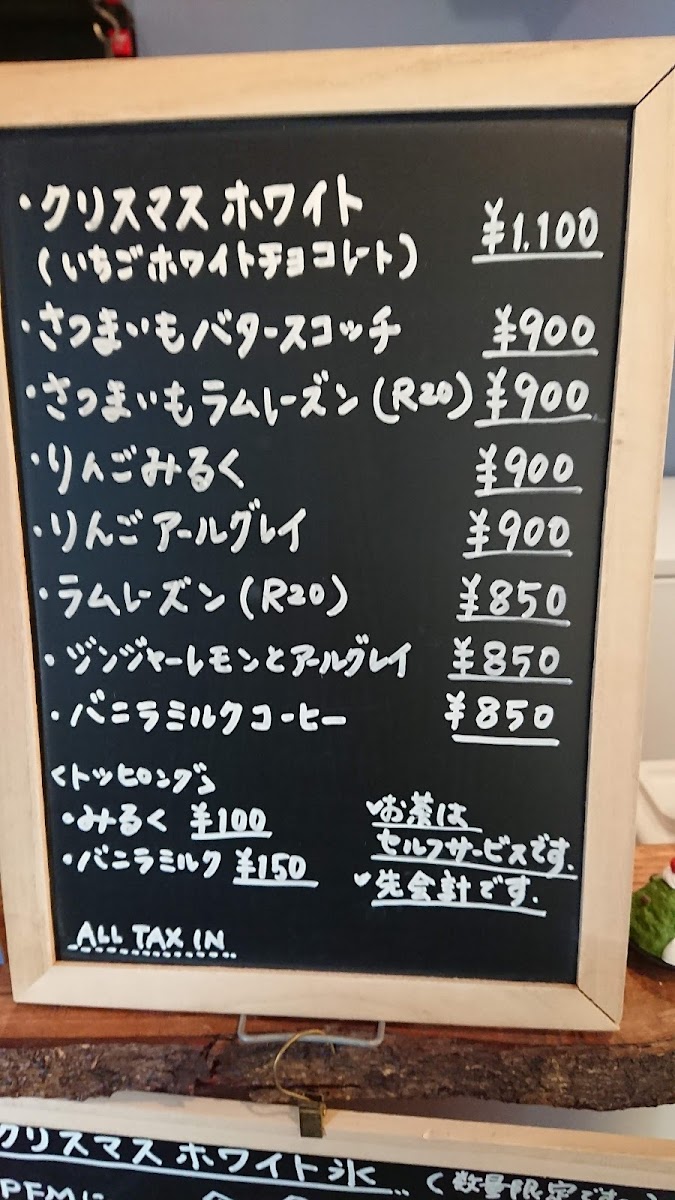 ・クリスマスホワイト ¥1.100
(いちごホワイトチョコレート)
・さつまいもバタースコッチ ¥900
・さつまいもラムレーズン(R20) ¥900
・りんごみるく ¥900
・りんごアールグレイ ¥900
・ラムレーズン(R20) ¥850
・ジンジャーレモンとアールグレイ ¥850
・バニラミルクコーヒー ¥850
<トッピング>
・みるく ¥100
・バニラミルク ¥150
✓お茶は
セルフサービスです.
✓先会計です.
ALL TAX IN
クリスマスホワイト氷 (数量限定